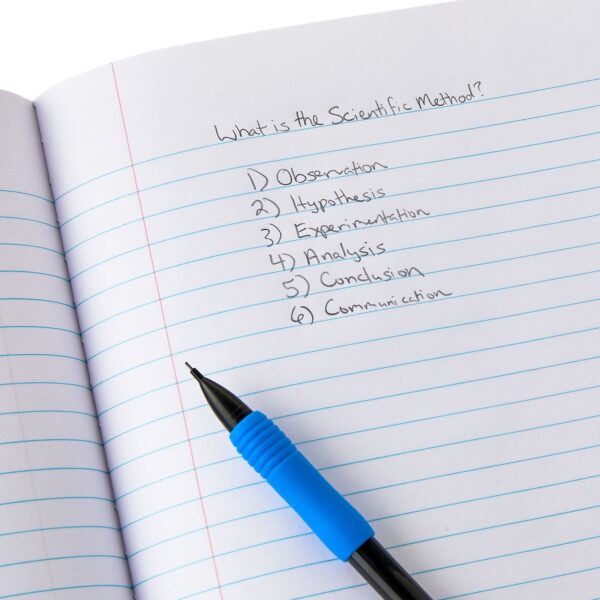 What is the Scientific Method?
1) Observation
2) Hypothesis
3) Experimentation
4) Analysis
5) Conclusion
6) Communication